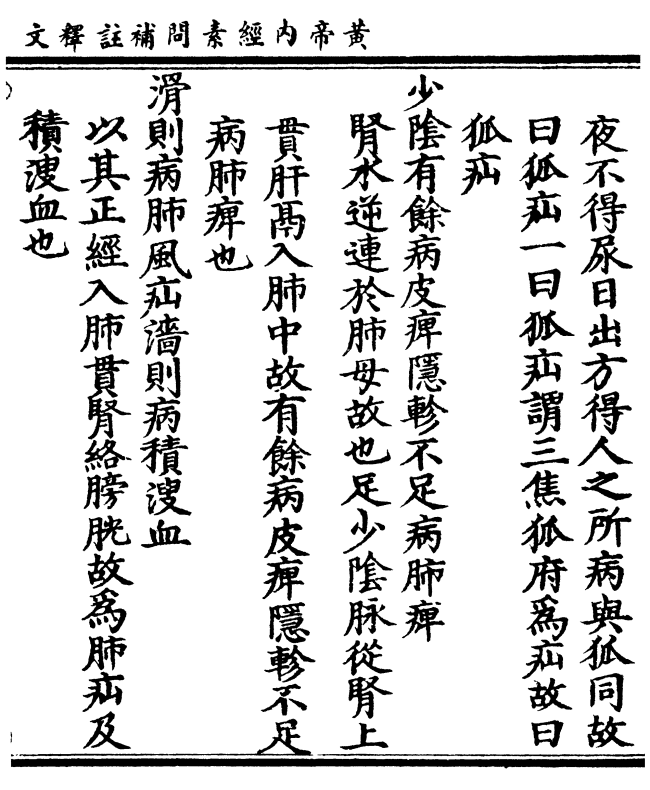 黃帝內經素問補註釋文
夜不得尿日出方得人之所病與狐同故
曰狐疝一曰狐疝謂三焦狐府爲疝故曰
狐疝
少陰有餘病皮痺隱軫不足病肺痺
腎水逆連於肺母故也足少陰脉從腎上
貫肝鬲入肺中故有餘病皮痺隱軫不足
病肺痺也
滑則病肺風疝濇則病積溲血
以其正經入肺貫腎絡膀胱故爲肺疝及
積溲血也